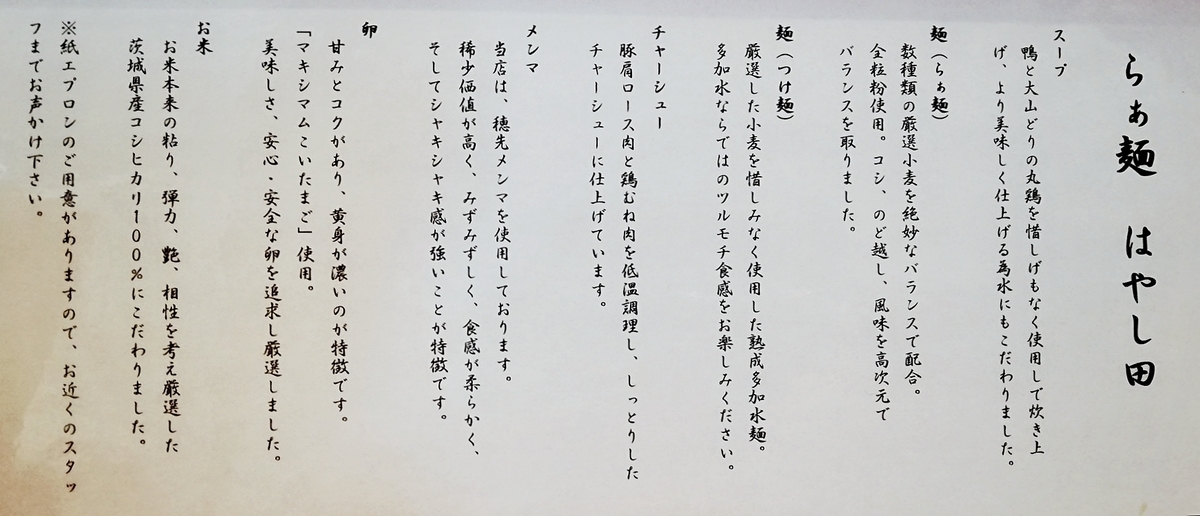 らぁ麺　はやし田
スープ
鴨と大山どりの丸鶏を惜しげもなく使用して炊き上
げ、より美味しく仕上げる為水にもこだわりました。
麺（らぁ麺）
数種類の厳選小麦を絶妙なバランスで配合。
全粒粉使用。コシ、のど越し、風味を高次元で
バランスを取りました。
麺（つけ麺）
厳選した小麦を惜しみなく使用した熟成多加水麺。
多加水ならではのツルモチ食感をお楽しみください。
チャーシュー
豚肩ロース肉と鶏むね肉を低温調理し、しっとりした
チャーシューに仕上げています。
メンマ
当店は、穂先メンマを使用しております。
稀少価値が高く、みずみずしく、食感が柔らかく、
そしてシャキシャキ感が強いことが特徴です。
卵
甘みとコクがあり、黄身が濃いのが特徴です。
「マキシマムこいたまご」使用。
美味しさ、安心・安全な卵を追求し厳選しました。
お米
お米本来の粘り、弾力、艶、相性を考え厳選した
茨城県産コシヒカリ100％にこだわりました。
※紙エプロンのご用意がありますので、お近くのスタッ
フまでお声かけ下さい。